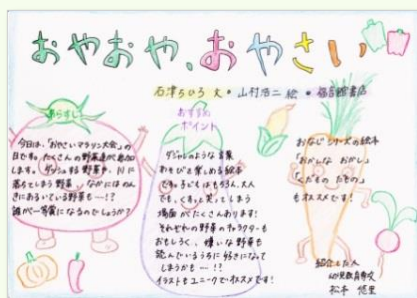 おやおや、おやさい
石津ちひろ 文 ・ 山村浩二 絵 ・ 福音館書店
あらすじ
今日は、「おやさいマラソン大会」の
日です。たくさんの野菜達が参加
します。ダッシュする野菜や、川に
落ちてしまう野菜、なかにはのん
きにあるいている野菜も…!?
誰が一等賞になるのでしょうか?
おすすめ
ポイント
ダジャレのような言葉
あそびを楽しめる絵本
です。子どもはもちろん、大人
でも、くすっと笑ってしまう
場面がたくさんあります!
それぞれの野菜のキャラクターも
おもしろく、嫌いな野菜も
読んでいるうちに好きになって
しまうかも…!?
イラストもユニークでオススメです!
おなじシリーズの絵本
「おかしな おかし」
「くだもの だもの」
もオススメです!
紹介した人
幼児教育学校
松本 悠里